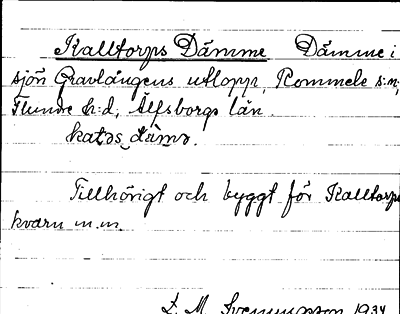 Kalltorps Dämme Dämme i
sjön Gravlångens utlopp, Rommele s:n,
Flundre h:d, Älfsborgs län.
katəs dämə.
Tillhörigt och byggt för Kalltorps
kvarn m.m.
L. M. Svenungsson 1934